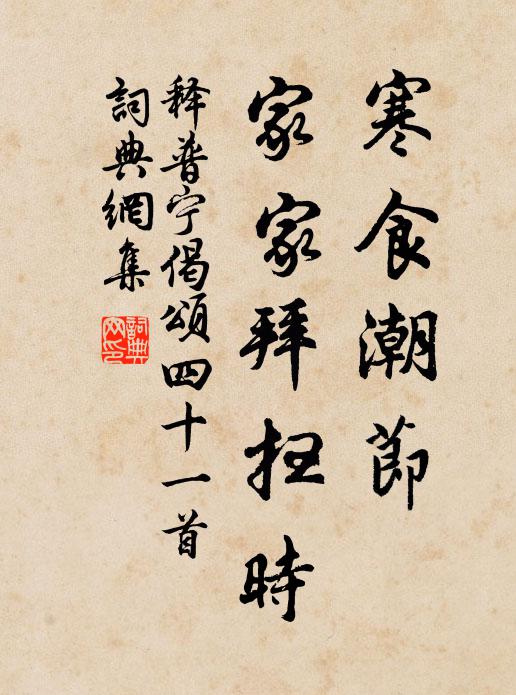 寒食潮節
家家拜扫時
释普宁偈頌四十一首
詞典網集
詞典网印